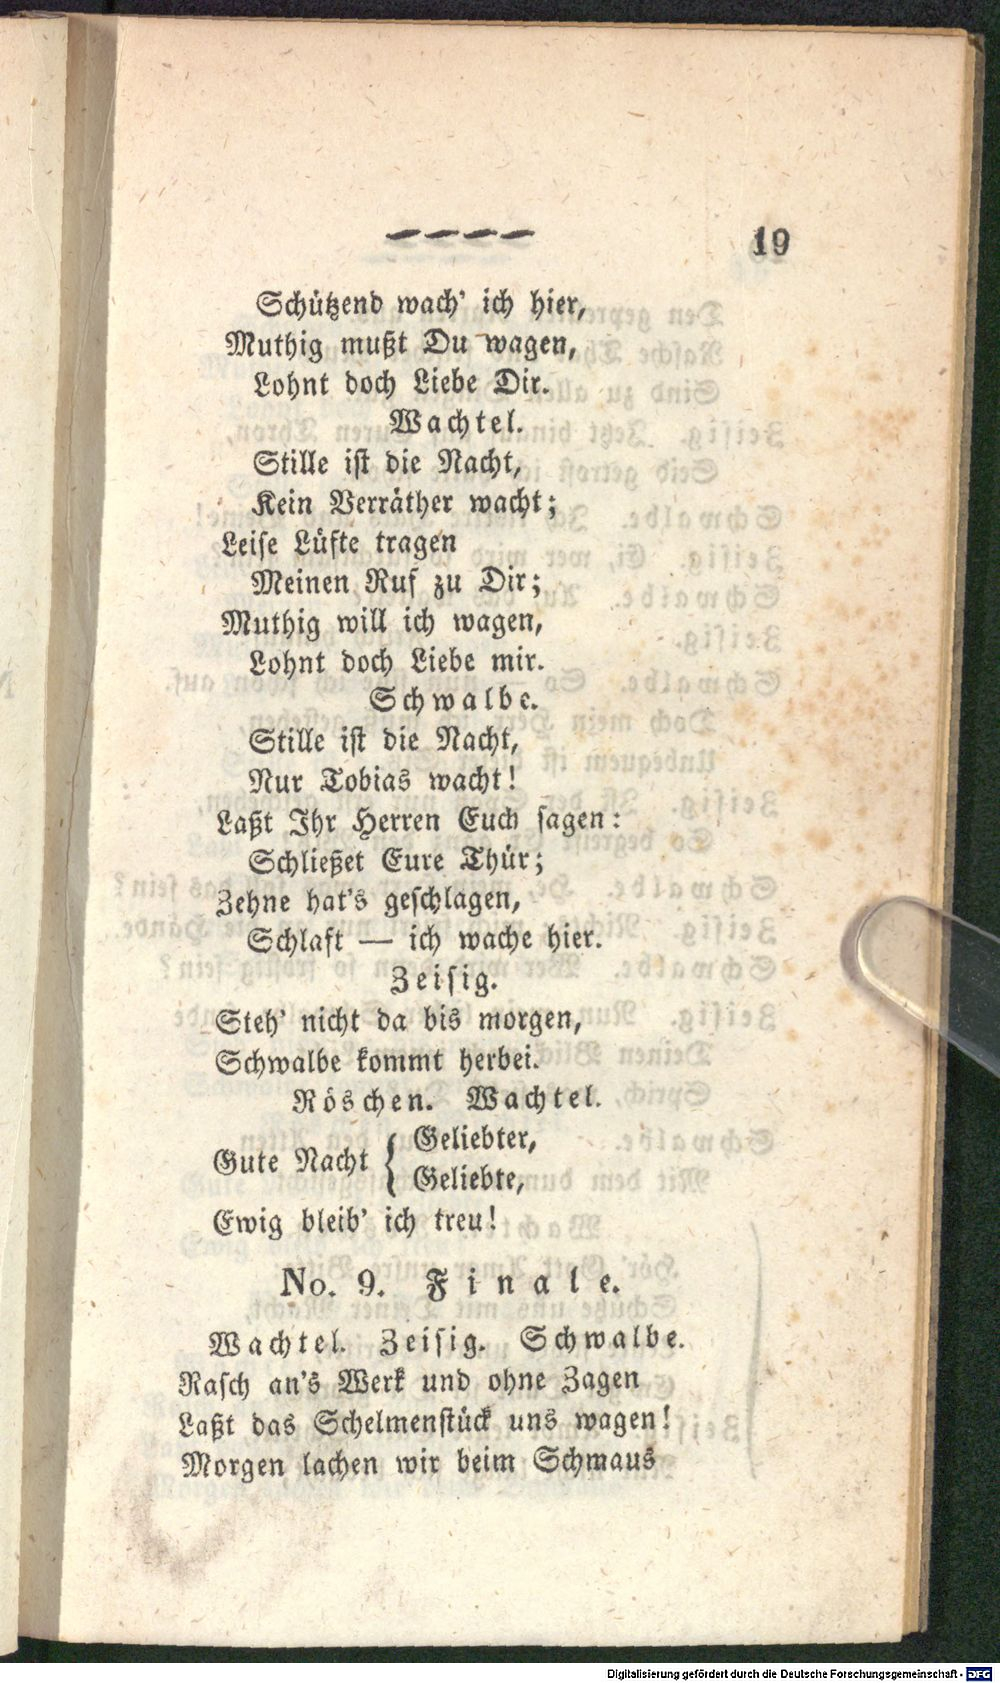 19
Schützend wach' ich hier,
Muthig mußt Du wagen,
Lohnt doch Liebe Dir.
Wachtel.
Stille ist die Nacht,
Kein Verräther wacht;
Leise Lüfte tragen
Meinen Ruf zu Dir;
Muthig will ich wagen,
Lohnt doch Liebe mir.
Schwalbe.
Stille ist die Nacht,
Nur Tobias wacht!
Laßt Ihr Herren Euch sagen:
Schließet Eure Thür;
Zehne hat's geschlagen,
Schlaft — ich wache hier.
Zeisig.
Steh' nicht da bis morgen,
Schwalbe kommt herbei.
Röschen. Wachtel.
Gute Nacht { Geliebter,
Geliebte,
Ewig bleib' ich treu!
No. 9. Finale.
Wachtel. Zeisig. Schwalbe.
Rasch an's Werk und ohne Zagen
Laßt das Schelmenstück uns wagen!
Morgen lachen wir beim Schmaus
Digitalisierung gefördert durch die Deutsche Forschungsgemeinschaft - DFG